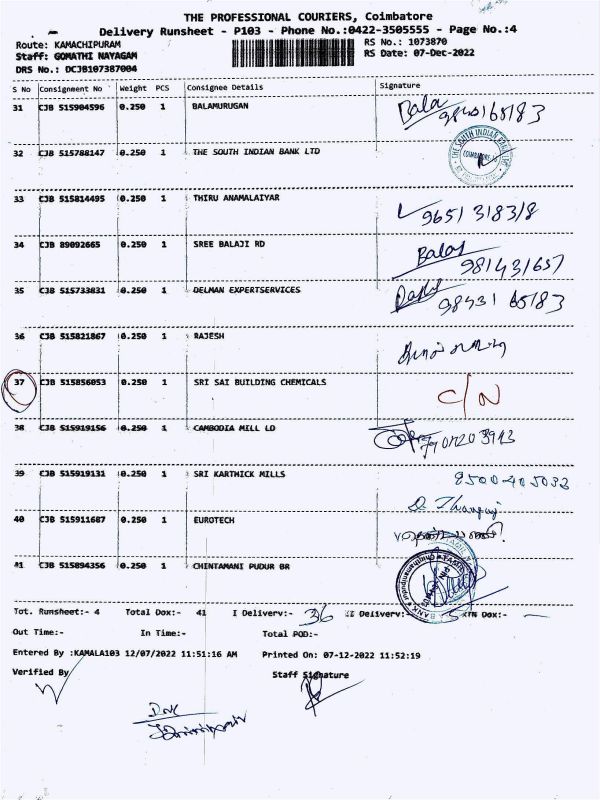 THE PROFESSIONAL COURIERS, Coimbatore
Delivery Runsheet - P103 - Phone No.:0422-3505555 - Page No.:4
Route: KAMACHIPURAM
RS No.: 1073870
Staff: GOMATHI NAYAGAM
RS Date: 07-Dec-2022
DRS No.: DCJB107387004
S No Consignment No Weight PCS Consignee Details Signature
31 CJB 515904596 0.250 1 BALAMURUGAN Bala
9843165183
32 CJB 515788147 0.250 1 THE SOUTH INDIAN BANK LTD
THE SOUTH INDIAN BANK LTD
COIMBATORE
33 CJB 515814495 0.250 1 THIRU ANAMALAIYAR
9651 318318
34 CJB 89092665 0.250 1 SREE BALAJI RD Balaj
981431657
35 CJB 515733831 0.250 1 DELMAN EXPERTSERVICES
98431 65183
36 CJB 515821867 0.250 1 RAJESH
37 CJB 515856053 0.250 1 SRI SAI BUILDING CHEMICALS C/N
38 CJB 515919156 0.250 1 CAMBODIA MILL LD
39 CJB 515919131 0.250 1 SRI KARTHICK MILLS 8500405032
D. Thangaraj
40 CJB 515911687 0.250 1 EUROTECH
41 CJB 515894356 0.250 1 CHINTAMANI PUDUR BR
Tot. Runsheet:- 4 Total Dox:- 41 I Delivery:- 36 II Delivery:- 5 RTN Dox:- -
Out Time:- In Time:- Total POD:-
Entered By :KAMALA103 12/07/2022 11:51:16 AM Printed On: 07-12-2022 11:52:19
Verified By Staff Signature